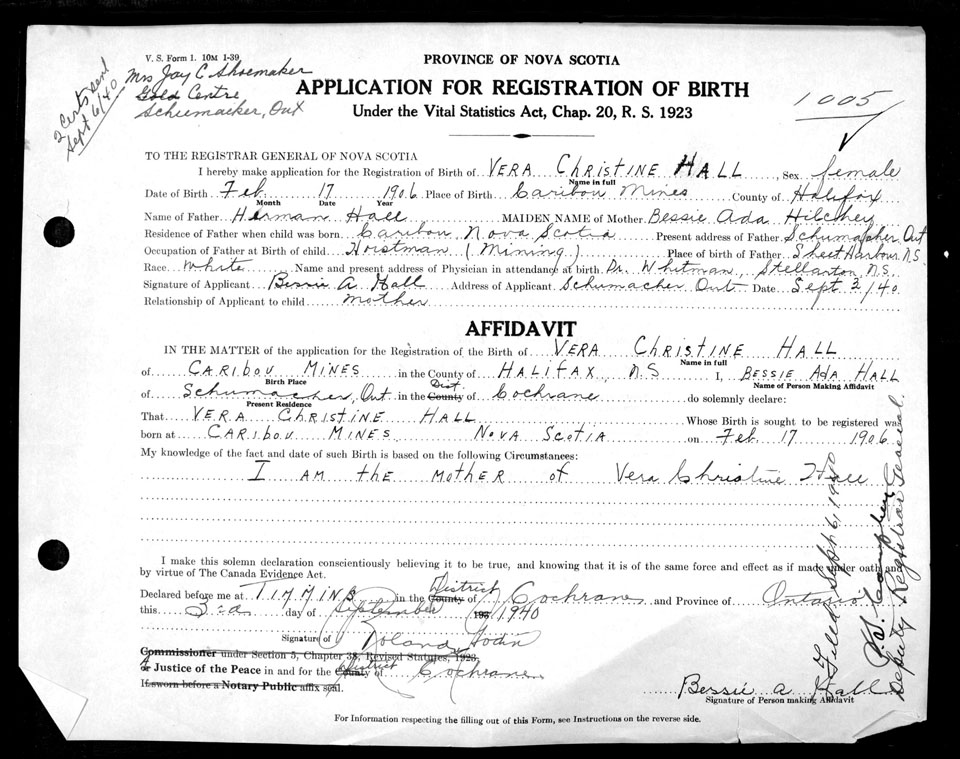 V. S. Form 1. 10M 1-39
Mrs Jay C Shoemaker
Gold Centre
Schumacker, Ont
2 certs sent
Sept 6/40
PROVINCE OF NOVA SCOTIA
APPLICATION FOR REGISTRATION OF BIRTH
Under the Vital Statistics Act, Chap. 20, R. S. 1923
1005
TO THE REGISTRAR GENERAL OF NOVA SCOTIA
I hereby make application for the Registration of Birth of VERA CHRISTINE HALL, Sex female
Name in full
Date of Birth Feb. 17 1906 Place of Birth Caribou Mines County of Halifax
Month Date Year
Name of Father Herman Hall MAIDEN NAME of Mother Bessie Ada Hilchey
Residence of Father when child was born Caribou Nova Scotia Present address of Father Schumacher Ont
Occupation of Father at Birth of child Hoistman (Mining) Place of birth of Father Sheet Harbour N.S.
Race white Name and present address of Physician in attendance at birth Dr. Whitman, Stellarton, N.S.
Signature of Applicant Bessie A. Hall Address of Applicant Schumacher Ont Date Sept 3/40
Relationship of Applicant to child mother
AFFIDAVIT
IN THE MATTER of the application for the Registration of the Birth of VERA CHRISTINE HALL
Name in full
of CARIBOU MINES in the County of HALIFAX, NS I, BESSIE ADA HALL
Birth Place Dist. Name of Person Making Affidavit
of Schumacher, Ont. in the County of Cochrane do solemnly declare:
Present Residence
That VERA CHRISTINE HALL Whose Birth is sought to be registered was
born at CARIBOU MINES NOVA SCOTIA on Feb. 17 1906
My knowledge of the fact and date of such Birth is based on the following Circumstances:
I AM THE MOTHER of Vera Christine Hall
I make this solemn declaration conscientiously believing it to be true, and knowing that it is of the same force and effect as if made under oath and
by virtue of The Canada Evidence Act.
District
Declared before me at TIMMINS in the County of Cochrane and Province of Ontario
this 3rd day of September 193 1940
Signature of Roland
Commissioner under Section 5, Chapter 38, Revised Statutes, 1923
A Justice of the Peace in and for the County of Cochrane
District
If sworn before a Notary Public affix seal.
Bessie A Hall
Signature of Person making Affidavit
Filed Sept 6, 1940
Deputy Registrar General
For Information respecting the filling out of this Form, see Instructions on the reverse side.